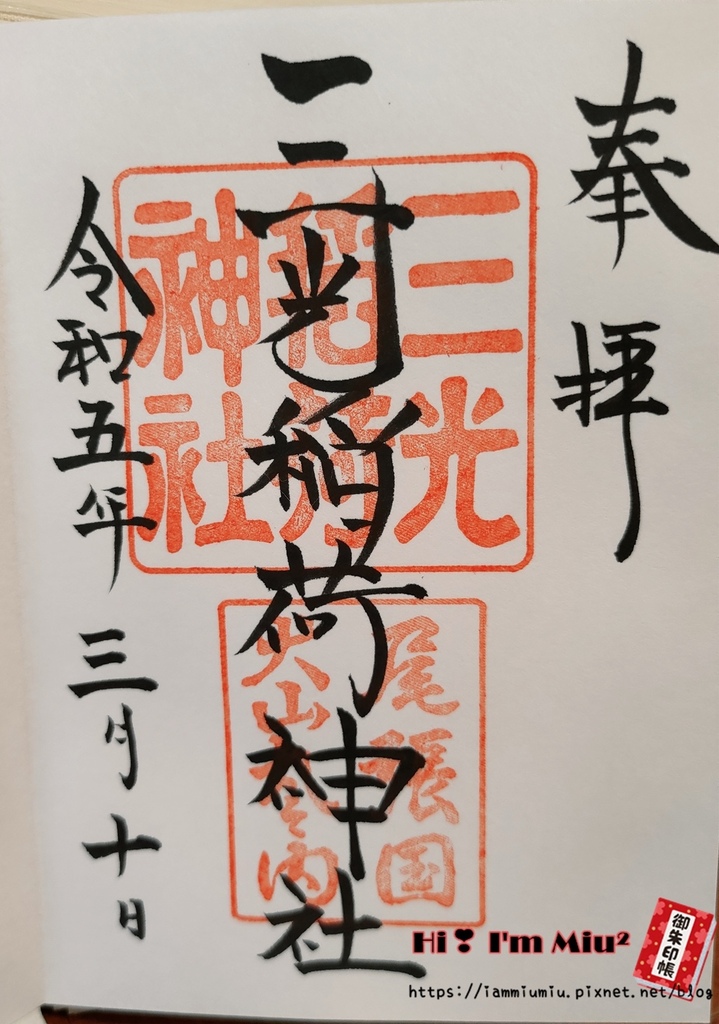 奉拝
三光稲荷神社
三光
稲荷
神社
尾張国
犬山城内
令和五年 三月十日
御朱印帳
Hi❣ I'm Miu²
https://iammiumiu.pixnet.net/blog